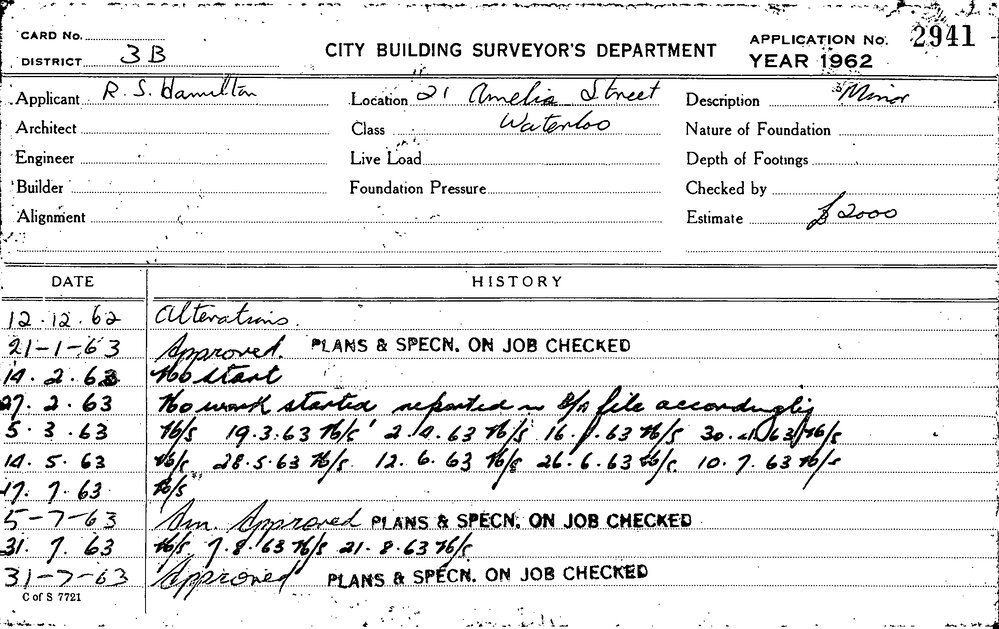 CARD No.
DISTRICT 3B
CITY BUILDING SURVEYOR'S DEPARTMENT
APPLICATION No. 2941
YEAR 1962
Applicant R. S. Hamilton Location 21 Amelia Street Description Minor
Architect Class Waterloo Nature of Foundation
Engineer Live Load Depth of Footings
Builder Foundation Pressure Checked by
Alignment Estimate £2000
DATE HISTORY
12.12.62 Alterations.
21-1-63 Approved. PLANS & SPECN. ON JOB CHECKED
14.2.63 No start
27.2.63 No work started reported on file accordingly
5.3.63 N/s 19.3.63 N/s 2.4.63 N/s 16. .63 N/s 30.4.63 N/s
14.5.63 N/s 28.5.63 N/s 12.6.63 N/s 26.6.63 N/s. 10.7.63 N/s
17.7.63 N/s
5-7-63 Am. Approved PLANS & SPECN. ON JOB CHECKED
31.7.63 N/s 7.8.63 N/s 21.8.63 N/s
31-7-63 Approved PLANS & SPECN. ON JOB CHECKED
C of S 7721